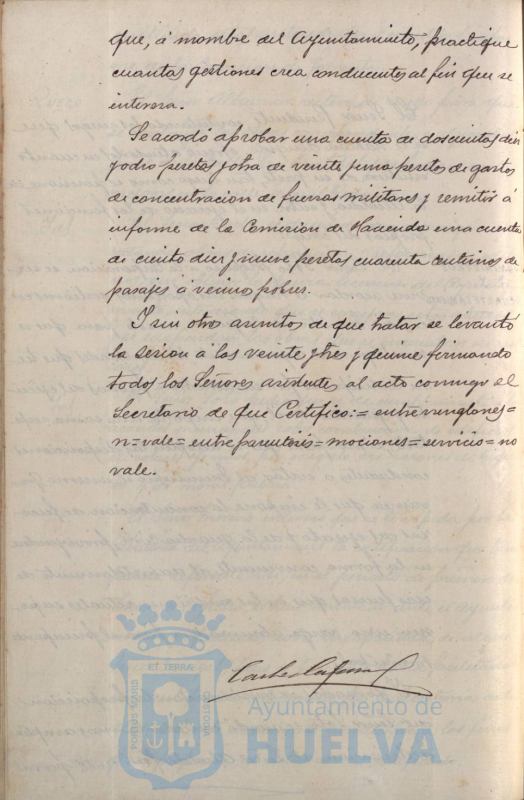 que, á nombre del Ayuntamiento, practique
cuantas gestiones crea conducentes al fin que se
interesa.
Se acordó aprobar una cuenta de doscientas diez
y ocho pesetas y otra de veinte y una pesetas de gastos
de concentracion de fuerzas militares y remitir á
informe de la Comision de Hacienda una cuenta
de ciento diez y nueve pesetas cuarenta centimos de
pasajes á vecinos pobres.
Y sin otros asuntos de que tratar se levantó
la sesion á las veinte y tres y quince firmando
todos los Señores asistentes al acto conmigo el
Secretario de que Certifico:= entre renglones=
n=vale= entre parentesis= mociones= servicio= no
vale.
PORTUS MARIS
ET TERRÆ
CUSTODIA
Ayuntamiento de
HUELVA